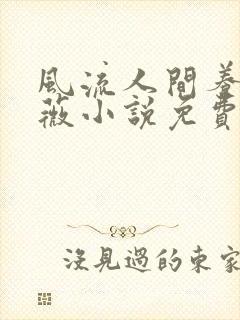 風流人間養
薇小說免費
沒見過的東家